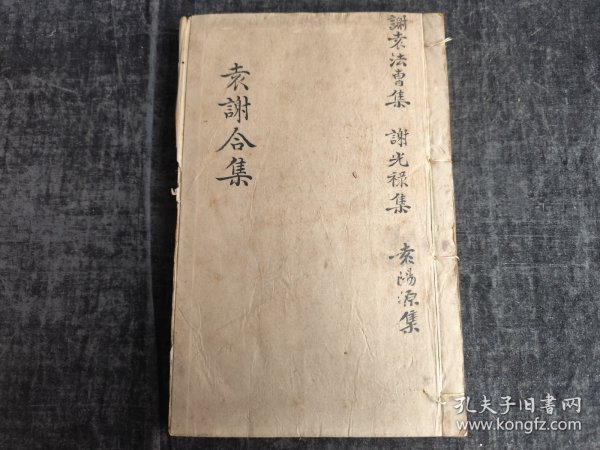 謝袁法曹集 謝光禄集 袁陽源集
袁謝合集
孔夫子旧书网
www.kongfz.com